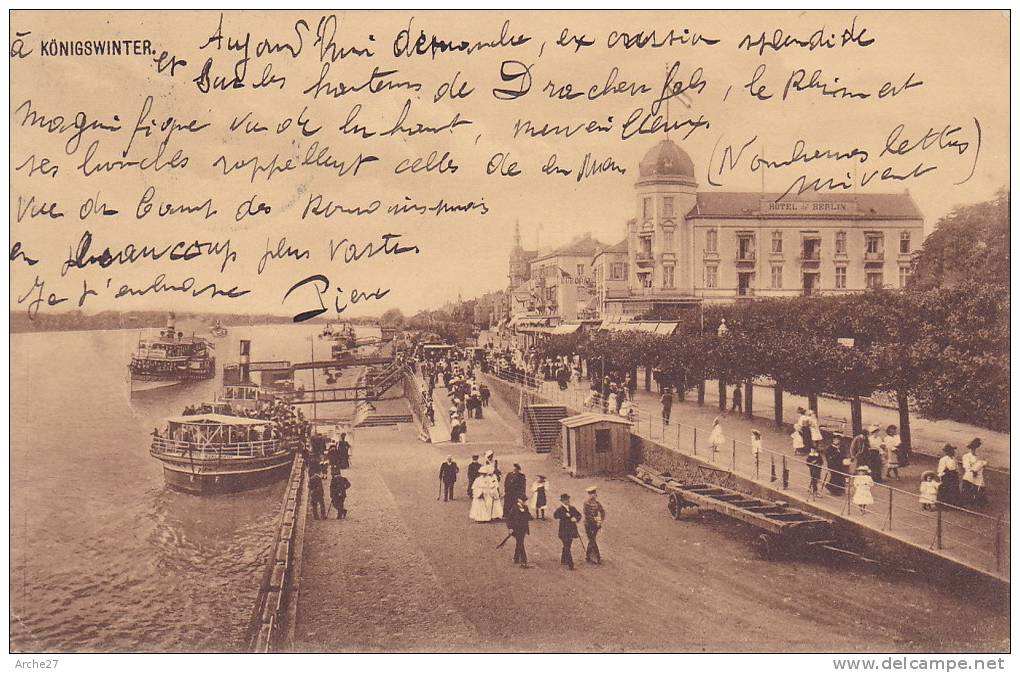 à KÖNIGSWINTER.
Aujourd'hui dimanche, excursion splendide
et sur les hauteurs de Drachenfels, le Rhin est
magnifique vu de là haut, merveilleux
ses boucles rappellent celles de la
vue du haut des mais
en beaucoup plus vastes
Je t'embrasse Pierre
(Nombreuses lettres
suivent)
HÔTEL DE BERLIN
EUROPE
Arche27
www.delcampe.net